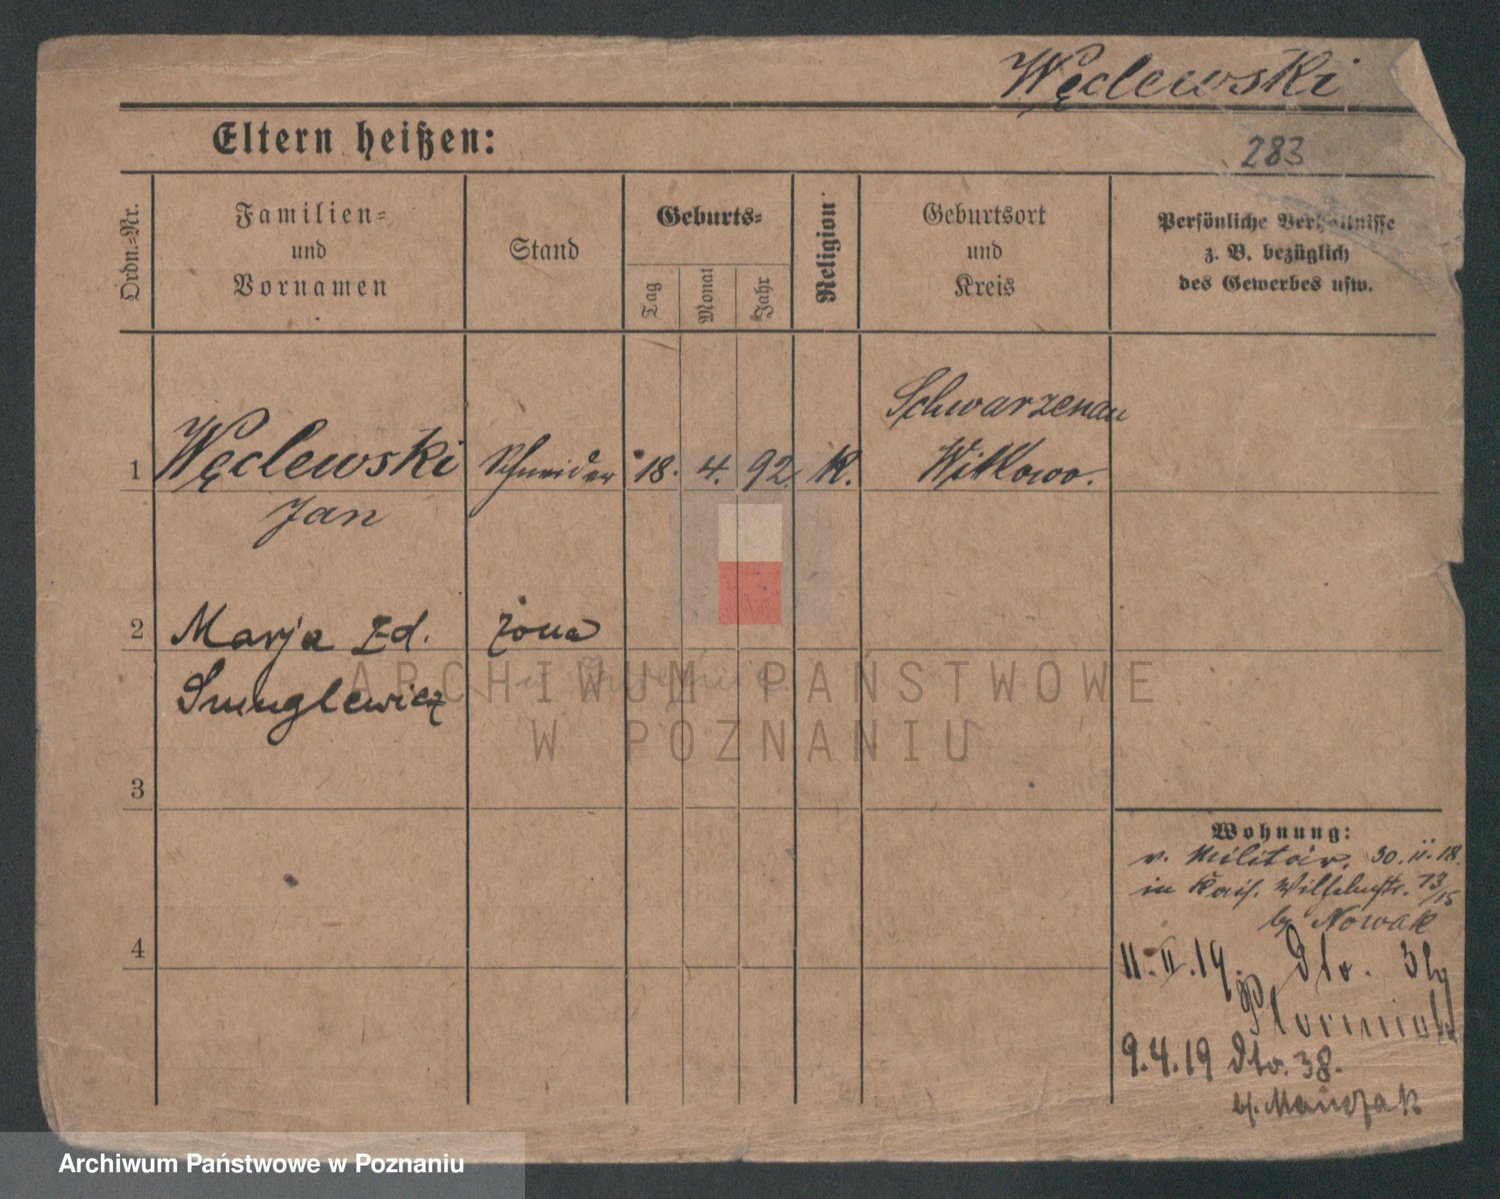 Węclewski
Eltern heißen:
283
Ordn.=Nr.
Familien=
und
Vornamen
Stand
Geburts=
Tag
Monat
Jahr
Religion
Geburtsort
und
Kreis
Persönliche Verhältnisse
z. B. bezüglich
des Gewerbes usw.
1
Węclewski
Jan
Schneider
18. 4. 92.
K.
Schwarzenau
Witkowo.
2
Marja Zd.
żona
ARCHIWUM PAŃSTWOWE
W POZNANIU
3
Wohnung:
v. Militär. 30. 11. 18.
in Kais. Wilhelmstr. 13/15
by Nowak
4
11. II. 19. dto.
9.4.19 dto. 38.
Archiwum Państwowe w Poznaniu